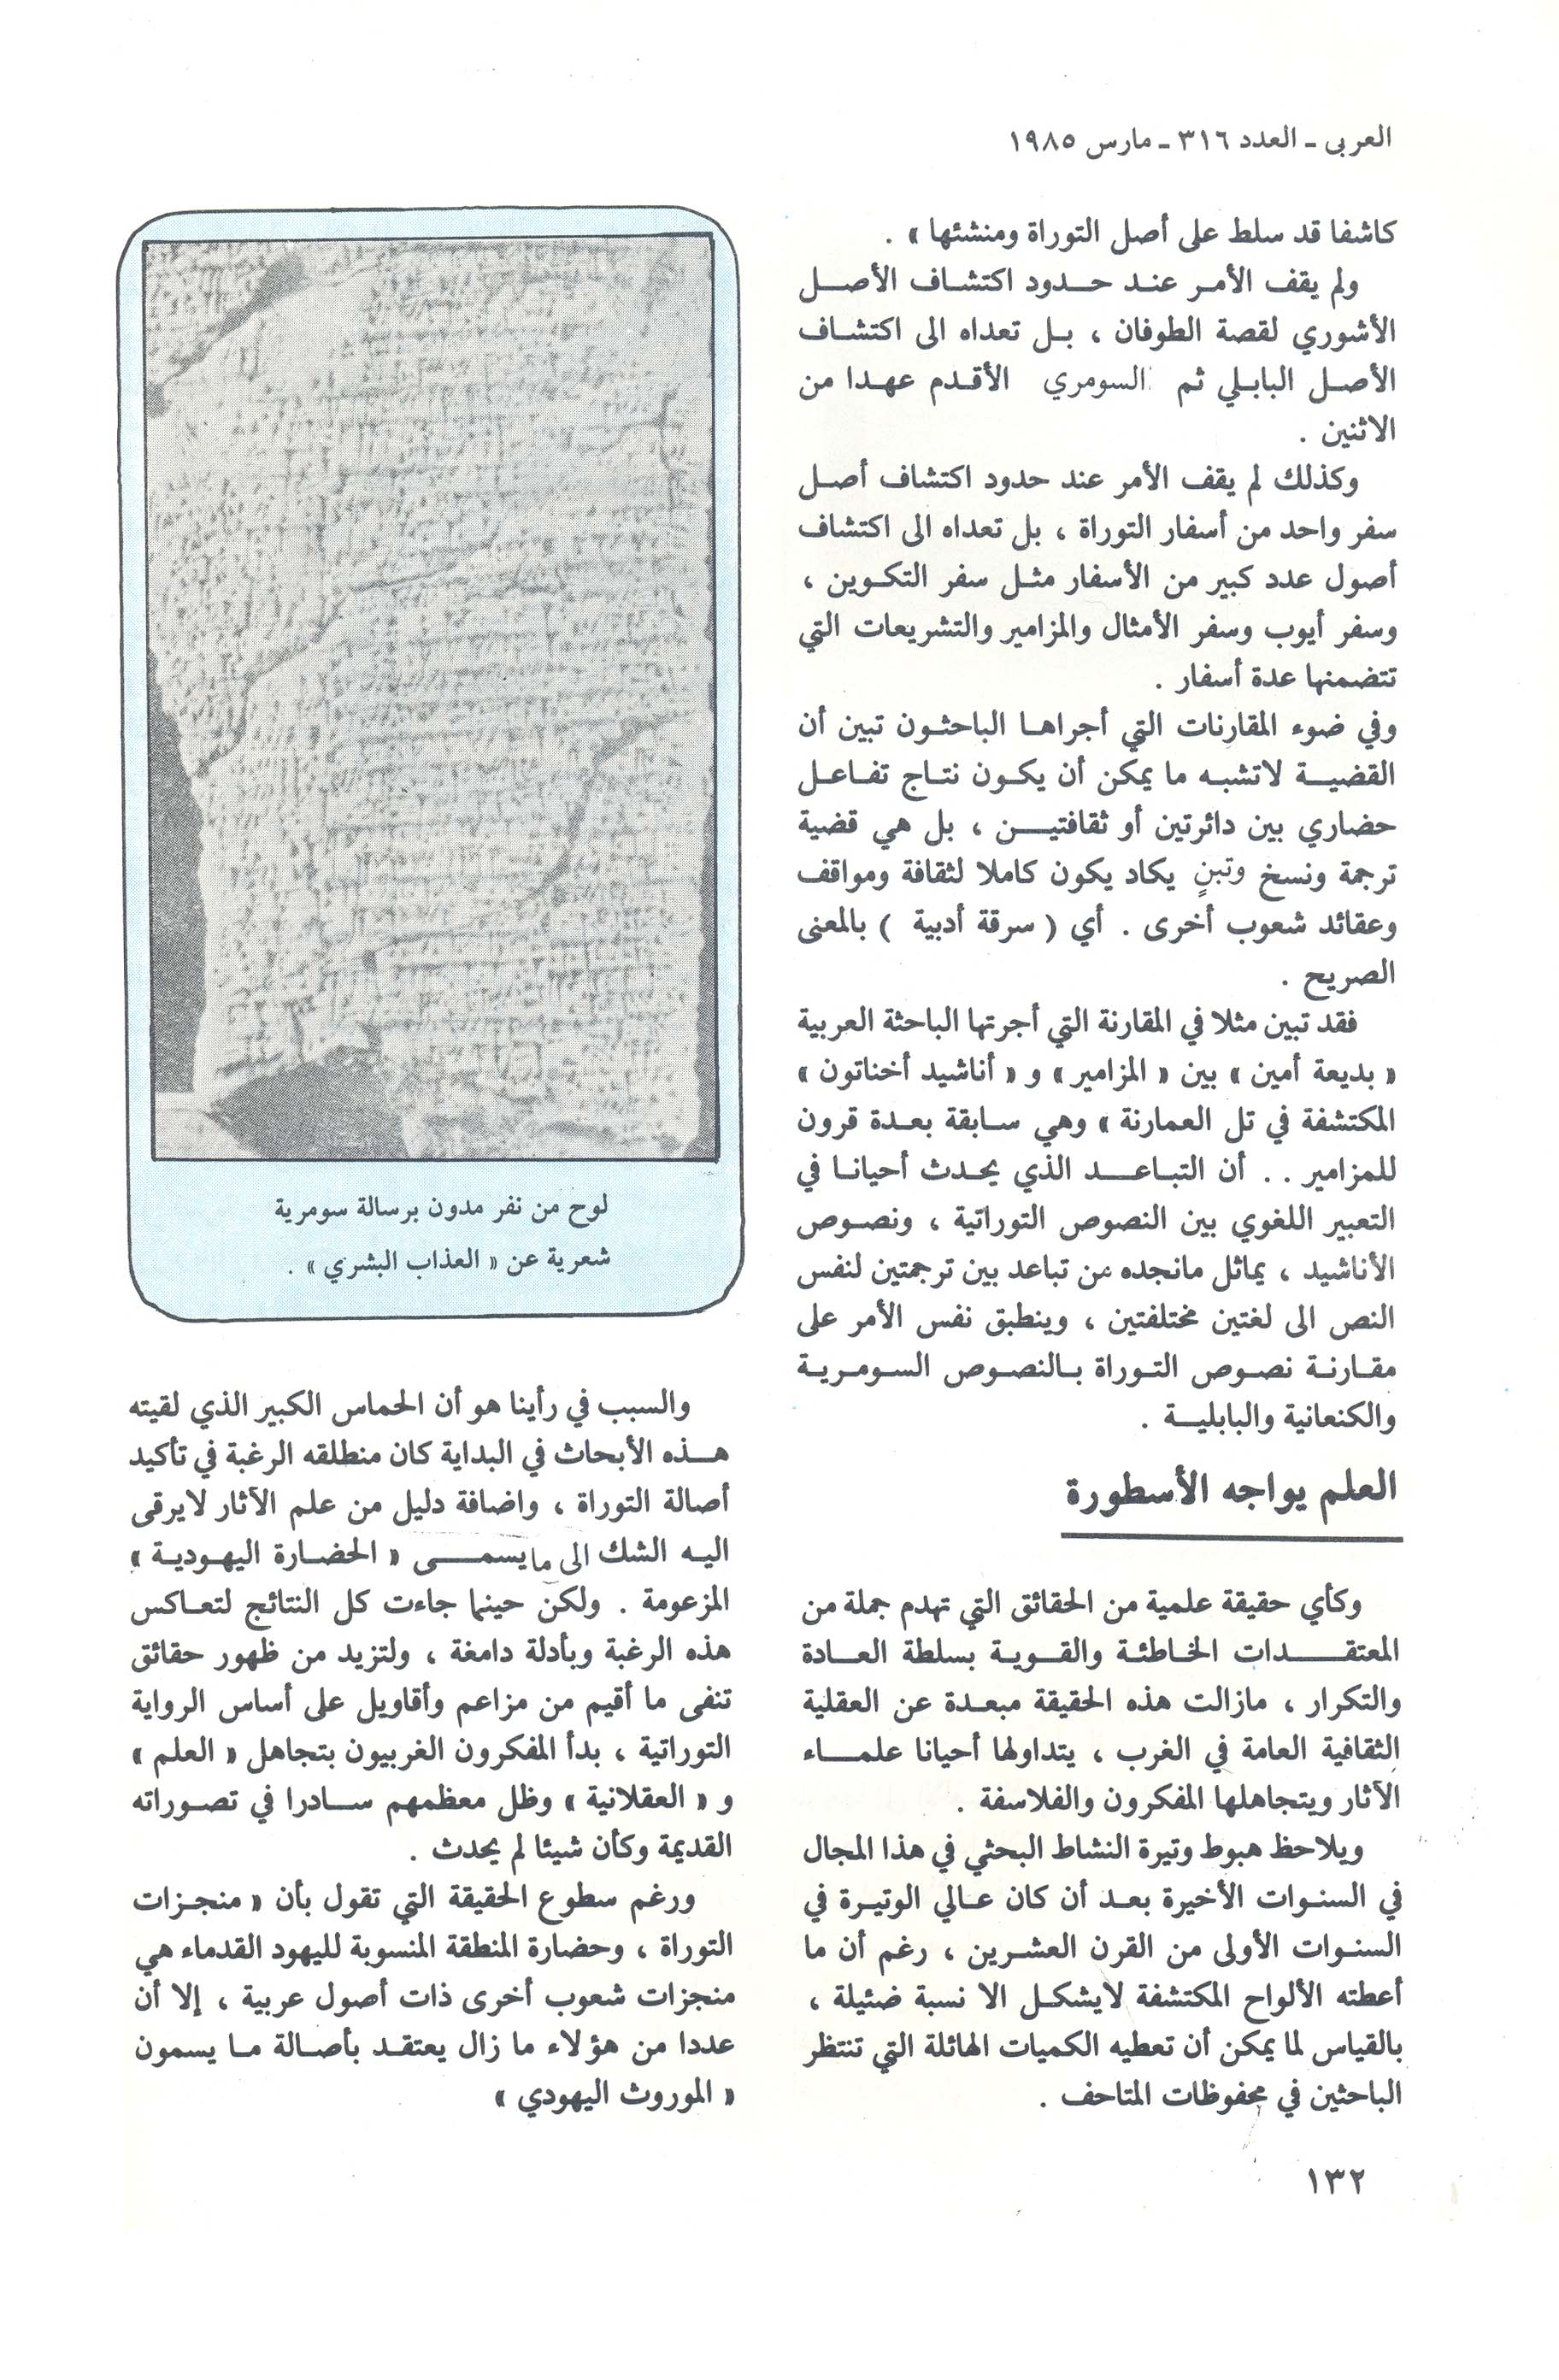 العربى ـ العدد ٣١٦ ـ مارس ١٩٨٥
كاشفا قد سلط على أصل التوراة ومنشئها » .
ولم يقف الأمر عند حدود اكتشاف الأصل
الأشوري لقصة الطوفان ، بل تعداه الى اكتشاف
الأصل البابلي ثم السومري الأقدم عهدا من
الاثنين .
وكذلك لم يقف الأمر عند حدود اكتشاف أصل
سفر واحد من أسفار التوراة ، بل تعداه الى اكتشاف
أصول عدد كبير من الأسفار مثل سفر التكوين ،
وسفر أيوب وسفر الأمثال والمزامير والتشريعات التي
تتضمنها عدة أسفار .
وفي ضوء المقارنات التي أجراها الباحثون تبين أن
القضية لاتشبه ما يمكن أن يكون نتاج تفاعل
حضاري بين دائرتين أو ثقافتين ، بل هي قضية
ترجمة ونسخ وتبنٍ يكاد يكون كاملا لثقافة ومواقف
وعقائد شعوب أخرى . أي ( سرقة أدبية ) بالمعنى
الصريح .
فقد تبين مثلا في المقارنة التي أجرتها الباحثة العربية
« بديعة أمين » بين « المزامير » و « أناشيد أخناتون »
المكتشفة في تل العمارنة » وهي سابقة بعدة قرون
للمزامير . . أن التباعد الذي يحدث أحيانا في
التعبير اللغوي بين النصوص التوراتية ، ونصوص
الأناشيد ، يماثل مانجده من تباعد بين ترجمتين لنفس
النص الى لغتين مختلفتين ، وينطبق نفس الأمر على
مقارنة نصوص التوراة بالنصوص السومرية
والكنعانية والبابلية .
العلم يواجه الأسطورة
وكأي حقيقة علمية من الحقائق التي تهدم جملة من
المعتقدات الخاطئة والقوية بسلطة العادة
والتكرار ، مازالت هذه الحقيقة مبعدة عن العقلية
الثقافية العامة في الغرب ، يتداولها أحيانا علماء
الآثار ويتجاهلها المفكرون والفلاسفة .
ويلاحظ هبوط وتيرة النشاط البحثي في هذا المجال
في السنوات الأخيرة بعد أن كان عالي الوتيرة في
السنوات الأولى من القرن العشرين ، رغم أن ما
أعطته الألواح المكتشفة لايشكل الا نسبة ضئيلة ،
بالقياس لما يمكن أن تعطيه الكميات الهائلة التي تنتظر
الباحثين في محفوظات المتاحف .
لوح من نفر مدون برسالة سومرية
شعرية عن « العذاب البشري » .
والسبب في رأينا هو أن الحماس الكبير الذي لقيته
هذه الأبحاث في البداية كان منطلقه الرغبة في تأكيد
أصالة التوراة ، واضافة دليل من علم الآثار لايرقى
اليه الشك الى مايسمى « الحضارة اليهودية »
المزعومة . ولكن حينما جاءت كل النتائج لتعاكس
هذه الرغبة وبأدلة دامغة ، ولتزيد من ظهور حقائق
تنفى ما أقيم من مزاعم وأقاويل على أساس الرواية
التوراتية ، بدأ المفكرون الغربيون بتجاهل « العلم »
و « العقلانية » وظل معظمهم سادرا في تصوراته
القديمة وكأن شيئا لم يحدث .
ورغم سطوع الحقيقة التي تقول بأن « منجزات
التوراة ، وحضارة المنطقة المنسوبة لليهود القدماء هي
منجزات شعوب أخرى ذات أصول عربية ، إلا أن
عددا من هؤلاء ما زال يعتقد بأصالة ما يسمون
« الموروث اليهودي »
١٣٢